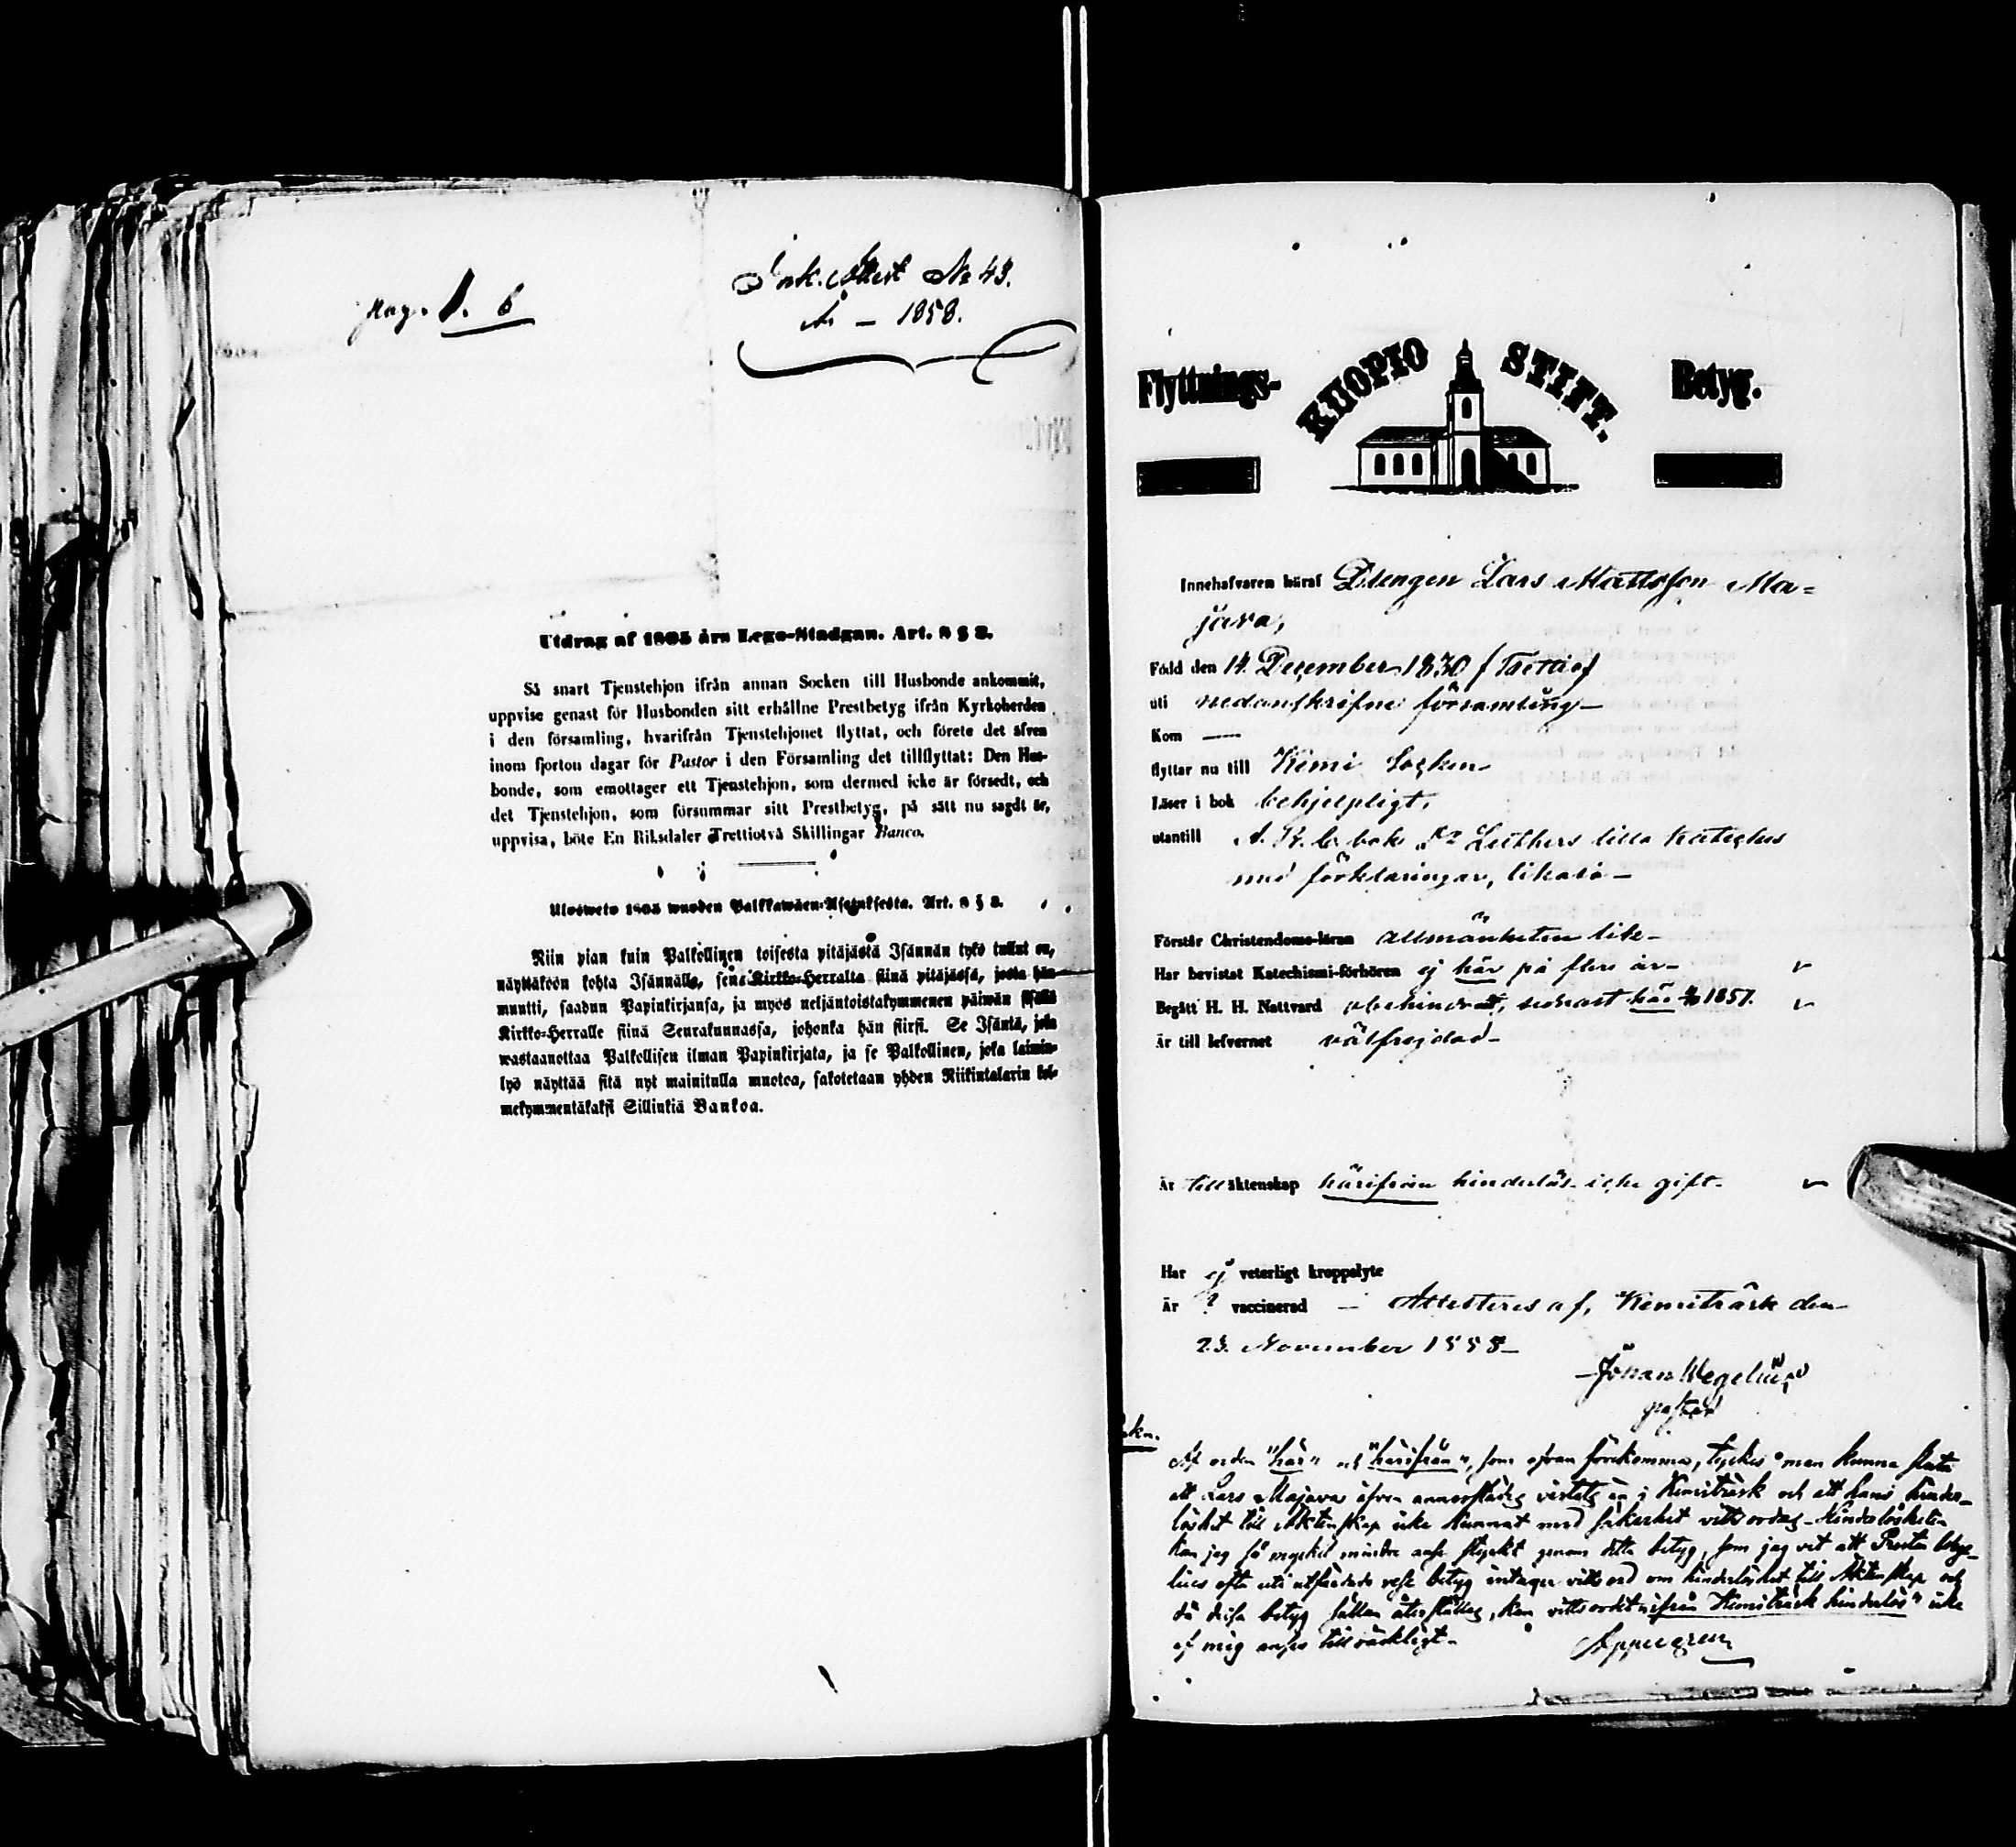 pag. 1. 6
Ink. Attest No 43.
År – 1858.
Utdrag af 1805 års Lego-Stadgan. Art. 8 § 3.
Så snart Tjenstehjon ifrån annan Socken till Husbonde ankommit,
uppvise genast för Husbonden sitt erhållne Prestbetyg ifrån Kyrkoherden
i den församling, hvarifrån Tjenstehjonet flyttat, och förete det äfven
inom fjorton dagar för Pastor i den Församling det tillflyttat: Den Hus-
bonde, som emottager ett Tjenstehjon, som dermed icke är försedt, och
det Tjenstehjon, som försummar sitt Prestbetyg, på sätt nu sagdt är,
uppvisa, böte En Riksdaler Trettiotvå Skillingar Banco.
Ulosweto 1805 wuoden Palkkawäen-Asetuksesta. Art. 8 § 3.
Niin pian kuin Palkollinen toisesta pitäjästä Isännän tykö tullut on,
näyttäköön kohta Isännälle, sen Kirkko-Herralta siinä pitäjässä, josta hän
muutti, saadun Papinkirjansa, ja myös neljäntoistakymmenen päiwän sisällä
Kirkko-Herralle siinä Seurakunnassa, johonka hän siirsi. Se Isäntä, joka
wastaanottaa Palkollisen ilman Papinkirjata, ja se Palkollinen, joka laimin-
lyö näyttää sitä nyt mainitulla muotoa, sakotetaan yhden Riikintalarin kol-
mekymmentäkaksi Sillinkiä Bankoa.
Flyttnings- KUOPIO STIFT. Betyg.
Innehafvaren häraf Drengen Lars Mattsson Ma-
java,
Född den 14 December 1830 / Trettio /
uti nedanskrifne församling
Kom —
flyttar nu till Kemi Socken
Läser i bok behjelpligt,
utantill A. B. C. bok Dr Luthers lilla Kateches
med förklaringar, likaså
Förstår Christendoms-läran allmänheten lik
Har bevistat Katechismi-förhören ej här på flere år
Begått H. H. Nattvard obehindrat, sednast här 1857.
Är till lefvernet välfrejdad
Är till äktenskap härifrån hinderlös icke gift.
Har ej veterligt kroppslyte
Är ? vaccinerad — Attesteres af, Kemiträsk den
23. November 1858
Johan Wegelius
pastor
Af orden "här" och "härifrån", som ofvan förekomma, tyckes man kunna sluta
att Lars Majava äfven annorstädes vistats än i Kemiträsk och att hans hinder-
löshet till Äktenskap icke kunnat med säkerhet vittsordas. Hinderlösheten
kan jag så mycket mindre anse styrkt genom detta betyg, som jag vet att Prosten Wege-
lius ofta uti utfärdade betyg intager vittsord om hinderlöshet till Äktenskap och
då dessa betyg sällan återställas, kan vittsordet "ifrån Kemiträsk hinderlös" icke
af mig anses tillräckligt.
Appelgren